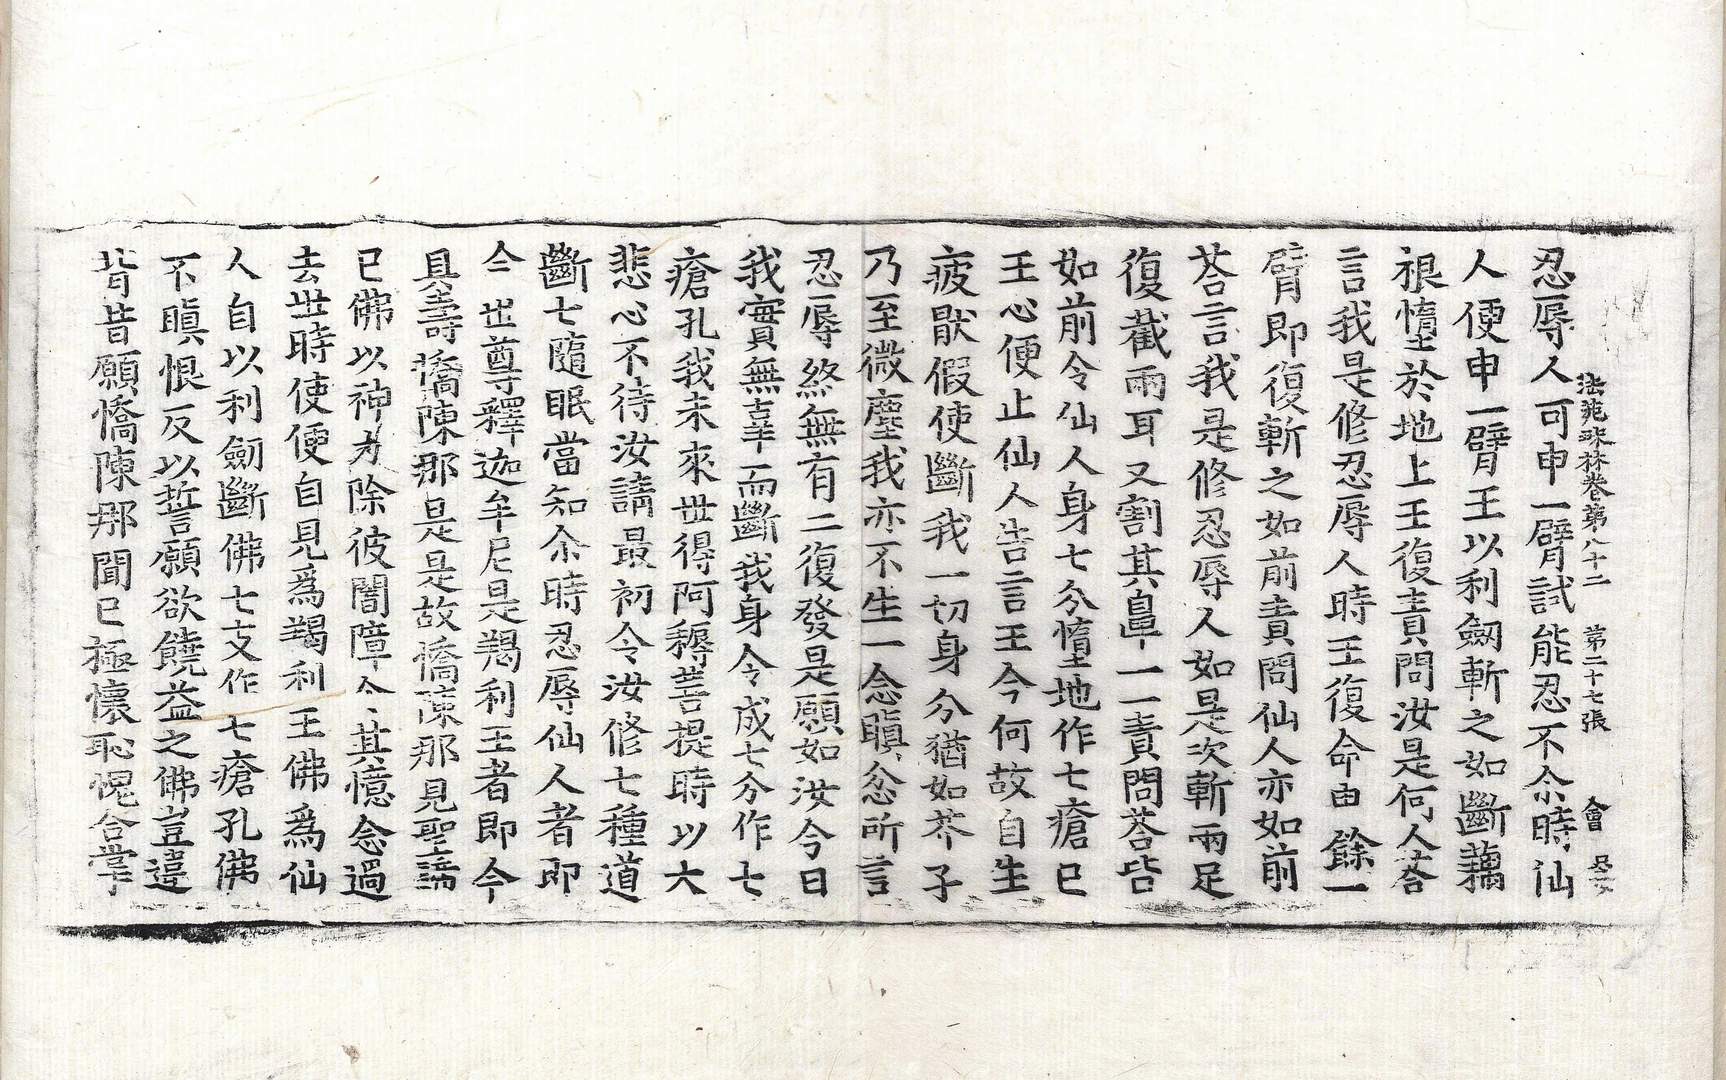 法苑珠林卷第八十二 第二十七張 會
忍辱人可申一臂試能忍不尒時仙
人便申一臂王以利劒斬之如斷藕
根墮於地上王復責問汝是何人荅
言我是修忍辱人時王復命申餘一
臂即復斬之如前責問仙人亦如前
荅言我是修忍辱人如是次斬兩足
復截兩耳又割其鼻一一責問荅皆
如前令仙人身七分墮地作七瘡已
王心便止仙人告言王今何故自生
疲猒假使斷我一切身分猶如芥子
乃至微塵我亦不生一念瞋忿所言
忍辱終無有二復發是願如汝今日
我實無辜而斷我身令成七分作七
瘡孔我未來世得阿耨菩提時以大
悲心不待汝請最初令汝修七種道
斷七隨眠當知尒時忍辱仙人者即
今世尊釋迦牟尼是羯利王者即今
具壽憍陳那是是故憍陳那見聖諦
已佛以神力除彼闇障令其憶念過
去世時使便自見爲羯利王佛爲仙
人自以利劒斷佛七支作七瘡孔佛
不瞋恨反以誓願欲饒益之佛豈違
背昔願憍陳那聞已極懷恥愧合掌